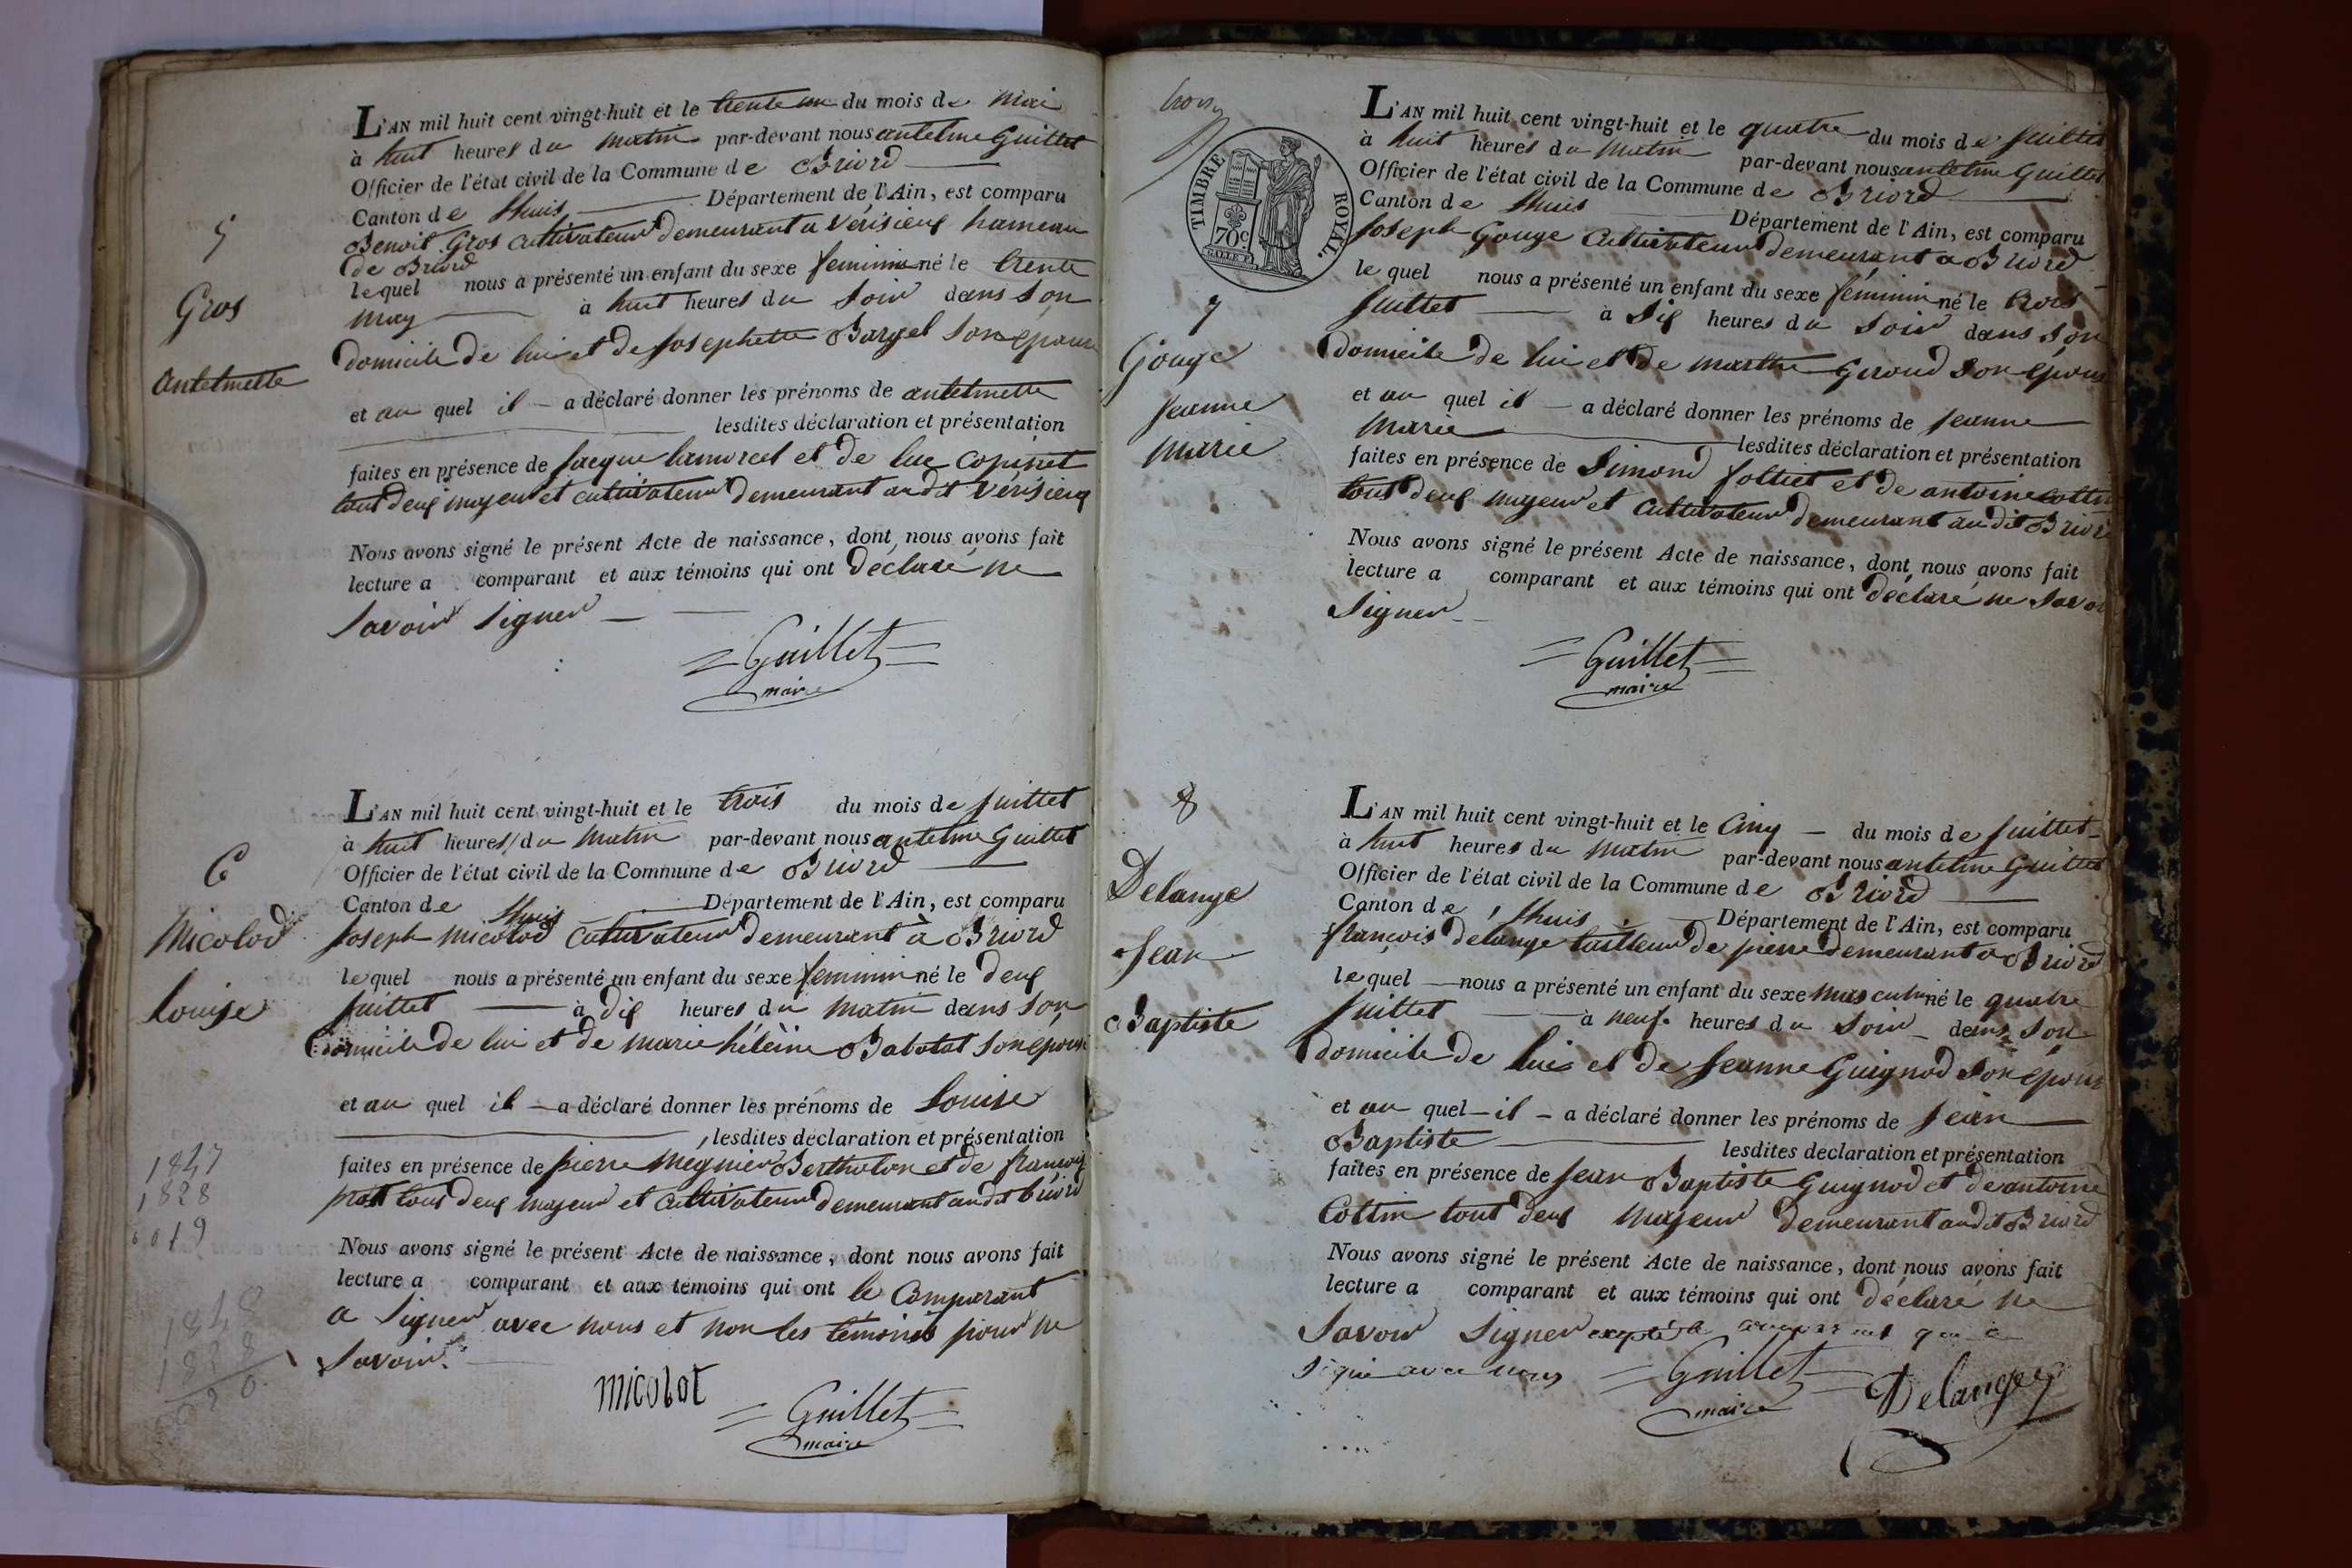 L'AN mil huit cent vingt-huit et le trente un du mois de Mai
à huit heures du matin par-devant nous antelme Guillet
Officier de l'état civil de la Commune de Briord
Canton de Lhuis Département de l'Ain, est comparu
Benoit Gros cultivateur demeurant a Vérisieux hameau
de Briord
5
le quel nous a présenté un enfant du sexe feminin né le trente
Gros
may à huit heures du Soir dans Son
domicile de lui et de Josephette Bargel Son épouse
Antelmette
et au quel il a déclaré donner les prénoms de antelmette
lesdites déclaration et présentation
faites en présence de Jacque et de luc Copinet
tout deux majeur et cultivateur demeurant audit Vérisieux
Nous avons signé le présent Acte de naissance, dont nous avons fait
lecture a comparant et aux témoins qui ont Déclaré ne
Savoir Signer
Guillet
maire
L'AN mil huit cent vingt-huit et le trois du mois de Juillet
à huit heures du Matin par-devant nous antelme Guillet
6
Officier de l'état civil de la Commune de Briord
Canton de Lhuis Département de l'Ain, est comparu
Micolod
Joseph Micolod Cultivateur demeurant à Briord
le quel nous a présenté un enfant du sexe feminin né le deux
Louise
Juillet à dix heures du Matin dans Son
domicile de lui et de marie hélèine Babolat Son épouse
et au quel il a déclaré donner les prénoms de Louise
lesdites déclaration et présentation
1847
faites en présence de pierre Megnier Bertholon et de françois
1828
prost tout deux majeur et Cultivateur demeurant audit briord
019
Nous avons signé le présent Acte de naissance, dont nous avons fait
lecture a comparant et aux témoins qui ont le Comparant
1848
a Signer avec nous et non les témoins pour ne
1828
Savoir
020
micolot
Guillet
maire
TIMBRE ROYAL.
70c
L'AN mil huit cent vingt-huit et le quatre du mois de Juillet
à huit heures du Matin par-devant nous antelme Guillet
Officier de l'état civil de la Commune de Briord
Canton de Lhuis Département de l'Ain, est comparu
Joseph Gouge Cultivateur demeurant a Briord
7
le quel nous a présenté un enfant du sexe féminin né le trois
Juillet à Six heures du Soir dans Son
Gouge
domicile de lui et de marthe Geroud Son épouse
Jeanne
et au quel il a déclaré donner les prénoms de Jeanne
Marie
Marie lesdites déclaration et présentation
faites en présence de Simond Jolliet et de antoine Cottin
tout deux majeur et Cultivateur demeurant audit Briord
Nous avons signé le présent Acte de naissance, dont nous avons fait
lecture a comparant et aux témoins qui ont déclaré ne Savoir
Signer
Guillet
maire
8
L'AN mil huit cent vingt-huit et le Cinq du mois de Juillet
à huit heures du Matin par-devant nous antelme Guillet
Delange
Officier de l'état civil de la Commune de Briord
Canton de Lhuis Département de l'Ain, est comparu
Jean
françois delange tailleur de pierre demeurant a Briord
le quel nous a présenté un enfant du sexe masculin né le quatre
Baptiste
Juillet à neuf heures du Soir dans Son
domicile de lui et de Jeanne Guignod Son épouse
et au quel il a déclaré donner les prénoms de Jean
Baptiste lesdites déclaration et présentation
faites en présence de Jean Baptiste Guignod et de antoine
Cottin tout deux Majeur demeurant audit Briord
Nous avons signé le présent Acte de naissance, dont nous avons fait
lecture a comparant et aux témoins qui ont déclaré ne
Savoir Signer excepté le qui a
Signé avec nous
Guillet
maire
Delange